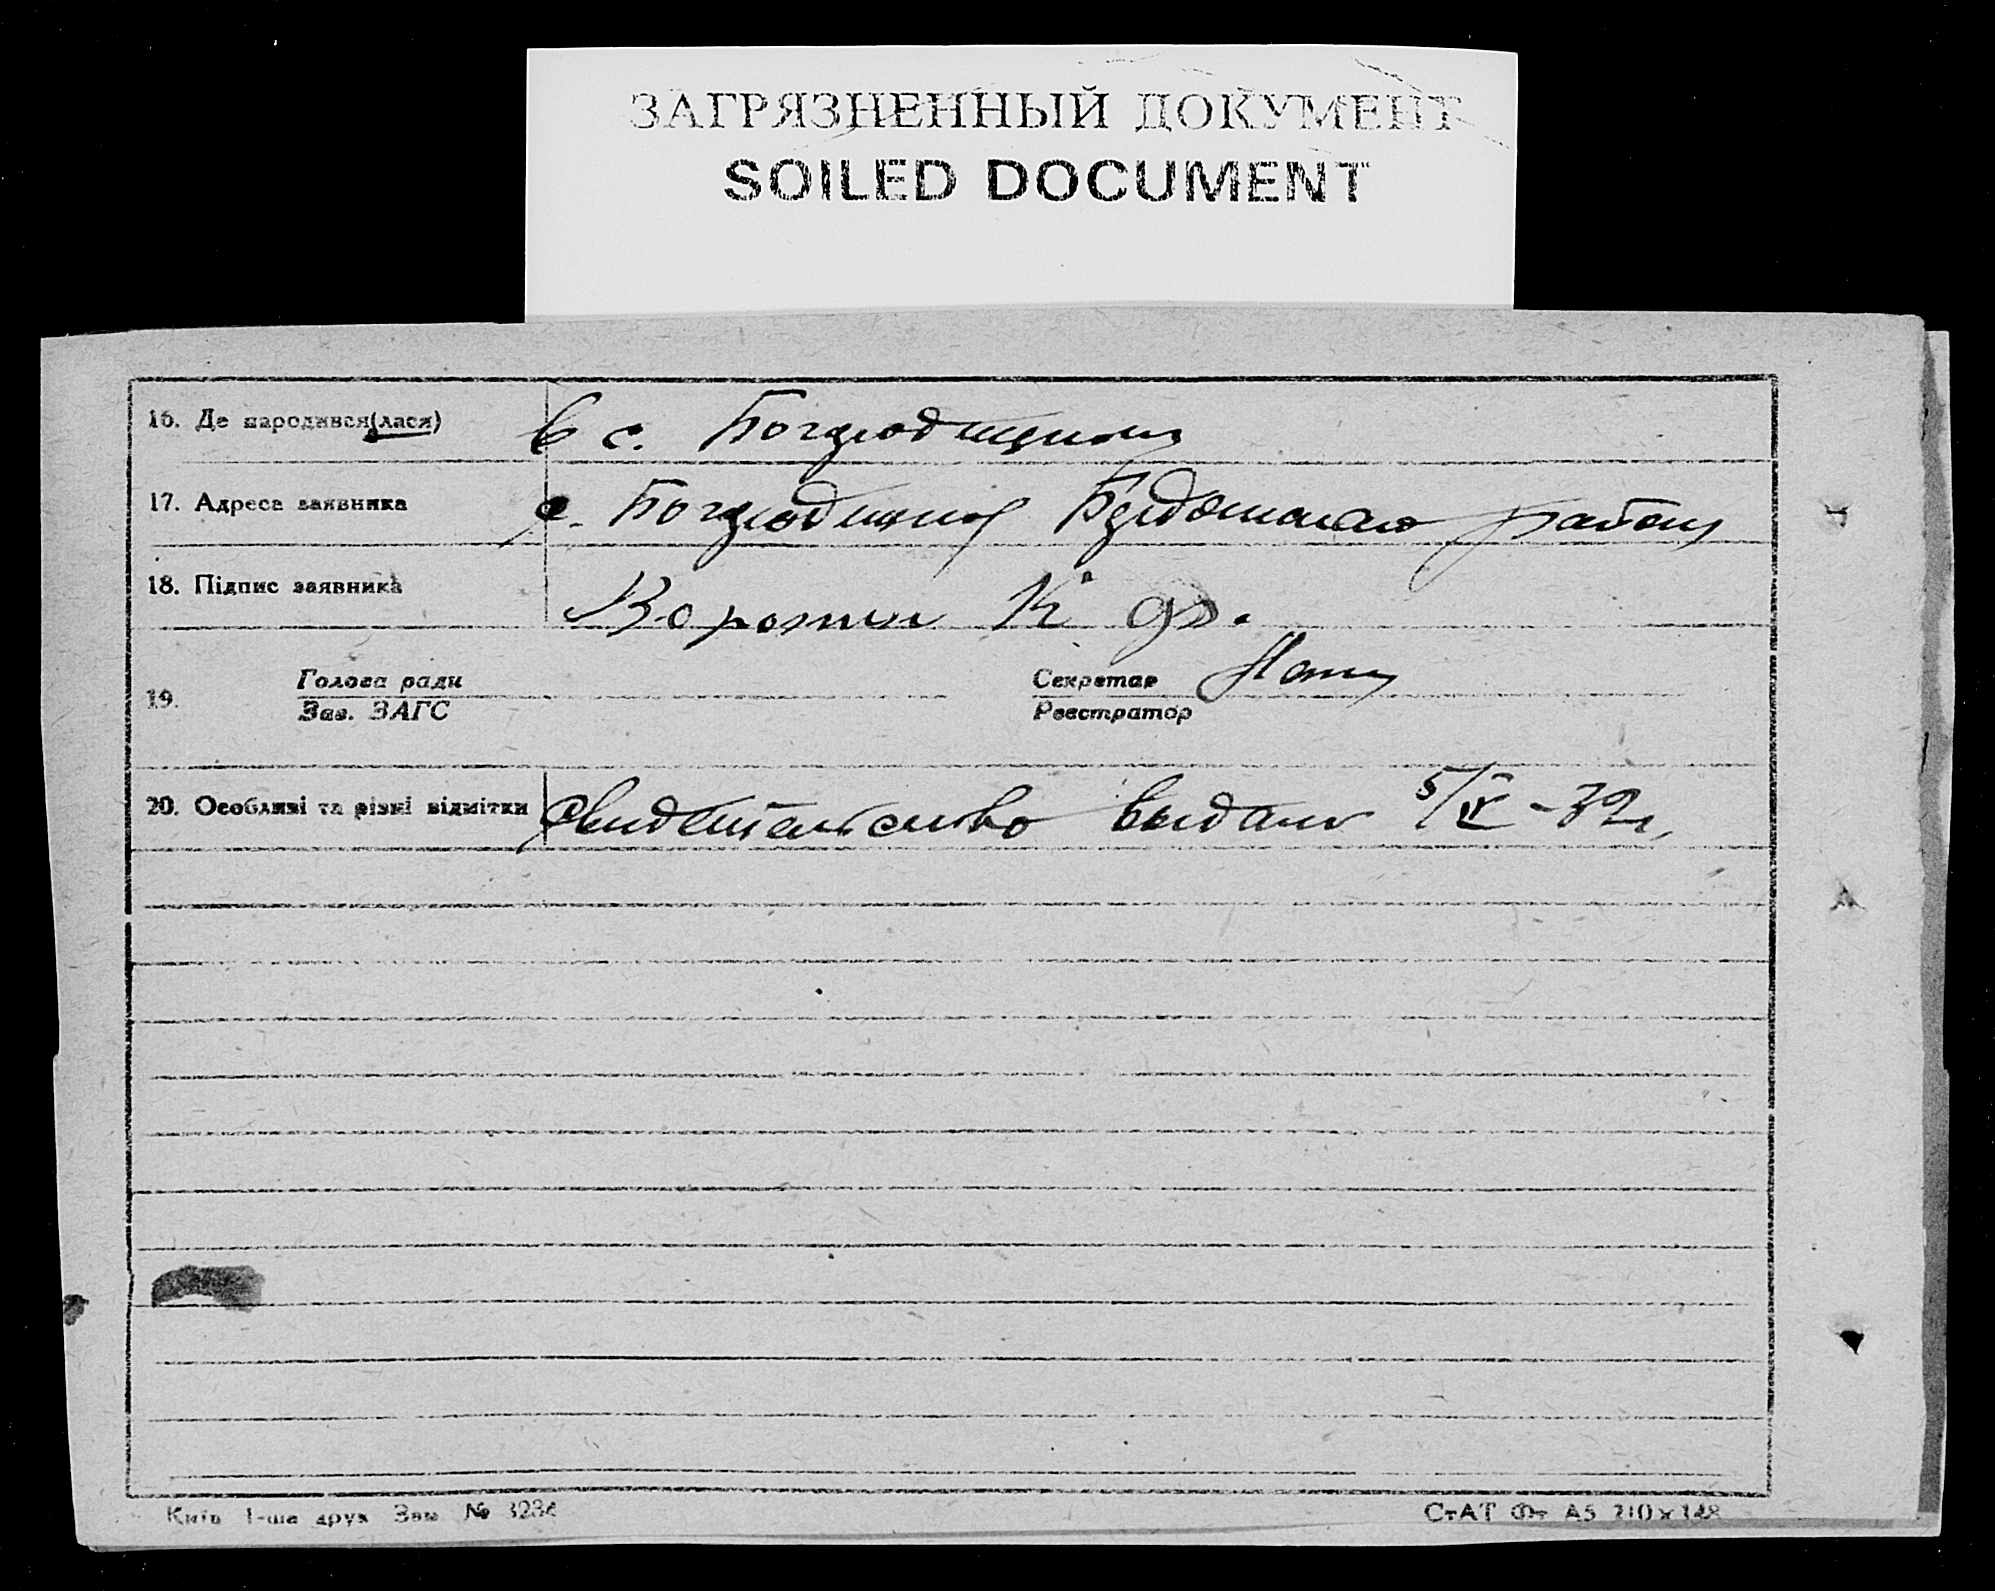 ЗАГРЯЗНЕННЫЙ ДОКУМЕНТ
SOILED DOCUMENT
16. Де народився(лася) в с.
17. Адреса заявника с. района
18. Підпис заявника К
19. Голова ради Секретар
Зав. ЗАГС Реєстратор
20. Особливі та різні відмітки Свидетельство выдано 5/IV-32г.
Київ 1-ша друк Зам № 3234 СтАТ Фт А5 210×148